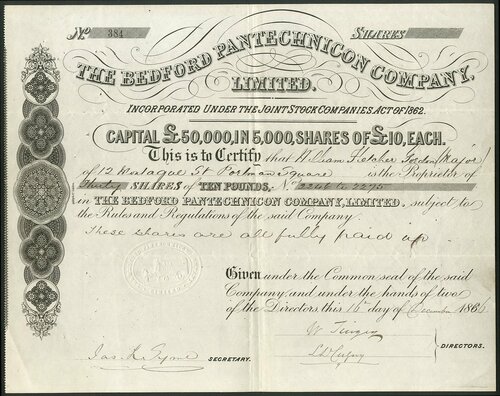 No 384 SHARES
THE BEDFORD PANTECHNICON COMPANY,
LIMITED.
INCORPORATED UNDER THE JOINT STOCK COMPANIES ACT OF 1862.
CAPITAL £50,000, IN 5,000, SHARES OF £10, EACH.
This is to Certify that William Fletcher Gordon (Major)
of 12 Montague St Portman Square is the Proprietor of
Thirty SHARES of TEN POUNDS, No 2246 to 2275
in THE BEDFORD PANTECHNICON COMPANY, LIMITED, subject to
the Rules and Regulations of the said Company.
These shares are all fully paid up
Given under the Common seal of the said
Company and under the hands of two
of the Directors, this 16th day of December 186
W
DIRECTORS.
Jas SECRETARY.